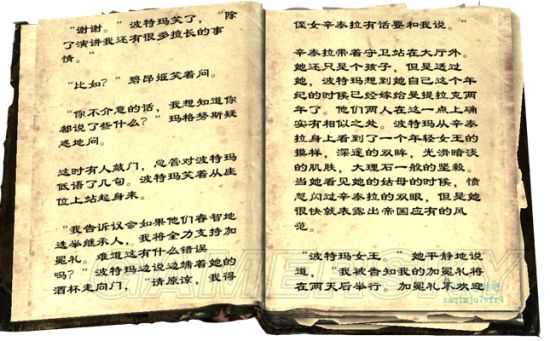 “谢谢。” 波特玛笑了，“除
了演讲我还有很多擅长的事
情。”
“比如？” 碧昂姬笑着问。
“你不介意的话，我想知道你
都说了些什么？” 玛格努斯疑
惑地问。
这时有人敲门，总管对波特玛
低语了几句。波特玛笑着从座
位上站起身来。
“我告诉议会如果他们睿智地
选举继承人，我将全力支持加
冕礼。难道这有什么错误
吗？” 波特玛边说边端着她的
酒杯走向门，“请原谅，我得
侄女辛泰拉有话要和我说。”
辛泰拉带着守卫站在大厅外。
她还只是个孩子，但是透过
她，波特玛想到她自己这个年
纪的时候已经嫁给曼提拉克两
年了。他们两人在这一点上确
实有相似之处。波特玛从辛泰
拉身上看到了一个年轻女王的
模样，深邃的双眸，光滑暗淡
的肌肤，大理石一般的坚毅。
当她看见她的姑母的时候，愤
怒闪过辛泰拉的双眼，但是她
很快就表露出帝国应有的风
范。
“波特玛女王，” 她平静地说
道，“我被告知我的加冕礼将
在两天后举行。加冕礼不欢迎
GAMERSKY
zaqimju7vfr4